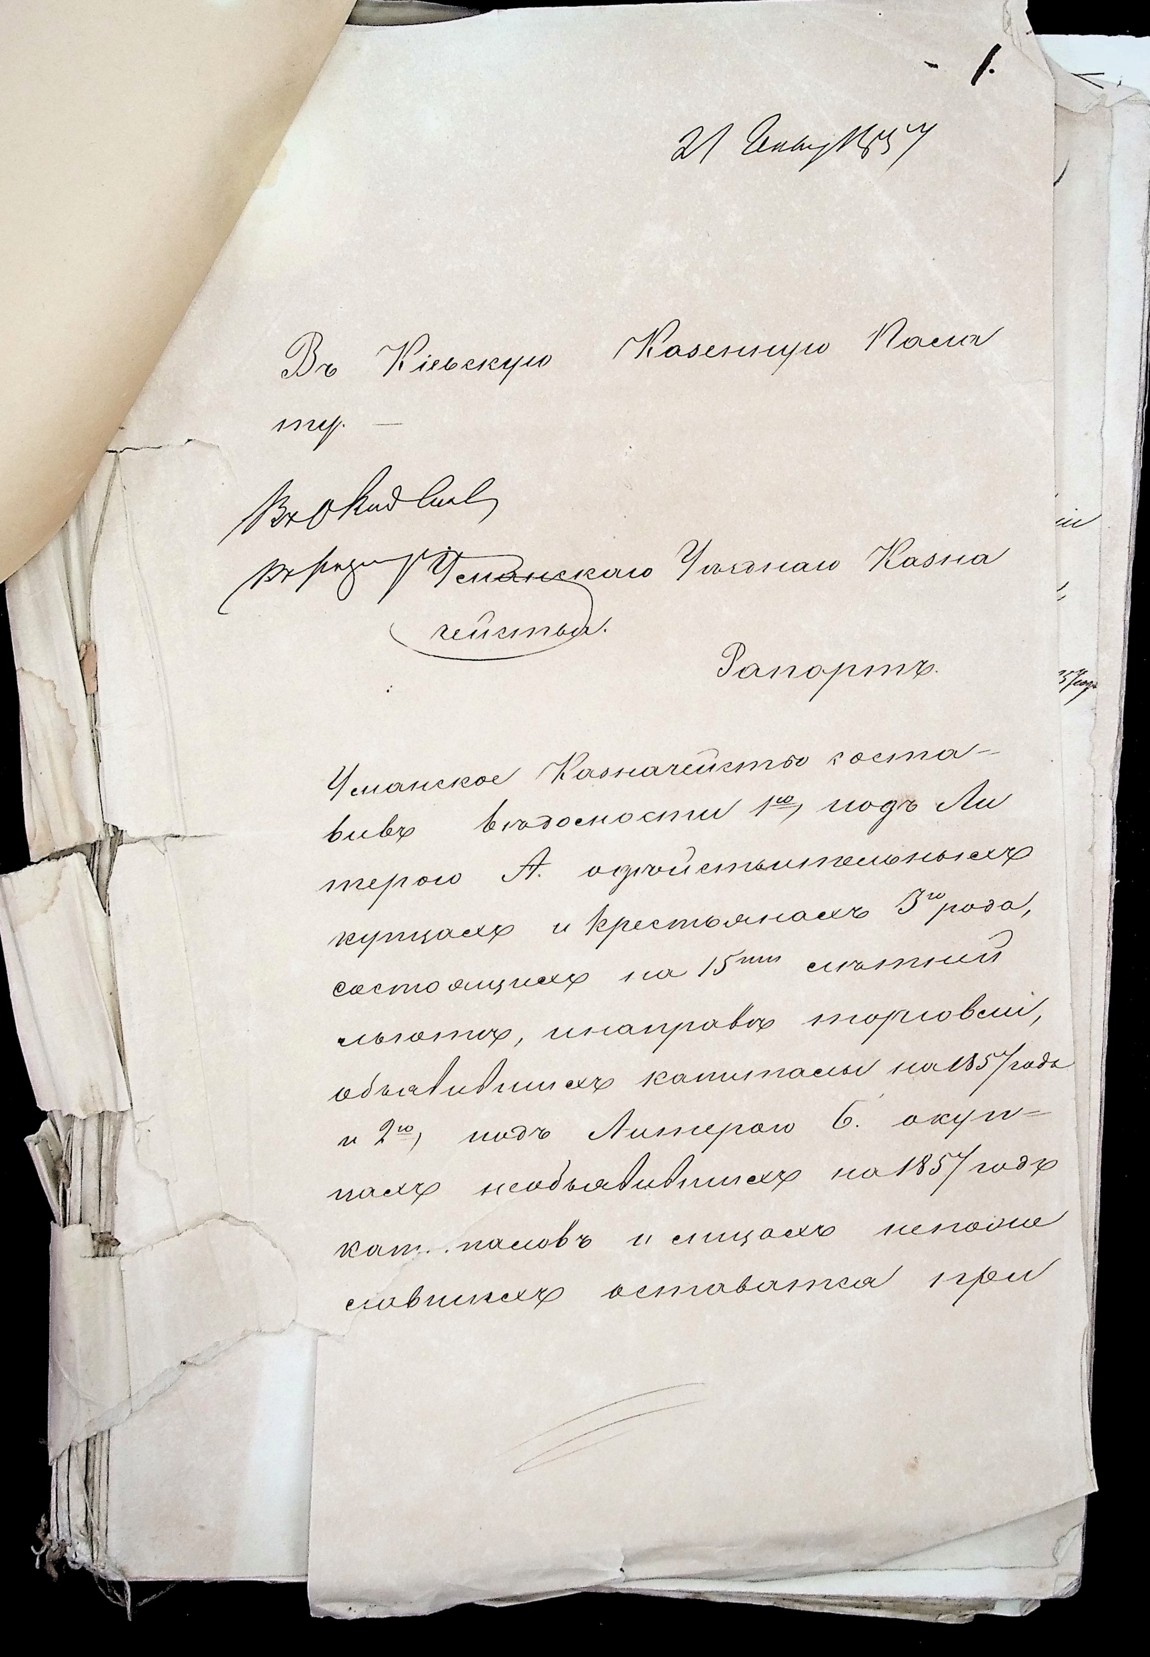 1.
21 Генвар 1857
Въ Кіевскую Казенную Пала
ту.
Уманскаго Уѣзднаго Казна
чейства.
Рапортъ.
Уманское Казначейство соста-
вивъ вѣдомости 1ю, подъ Ли
терою А. о дѣйствительныхъ
купцахъ и крестьянахъ 3го рода,
состоящихъ на 15ти лѣтней
льготѣ, и на правѣ торговли,
объявившихъ капиталы на 1857 годъ
и 2ю, подъ Литерою Б. о куп-
цахъ необъявившихъ на 1857 годъ
кап..таловъ и лицахъ непоже
лавшихъ оставатся при
57 годъ